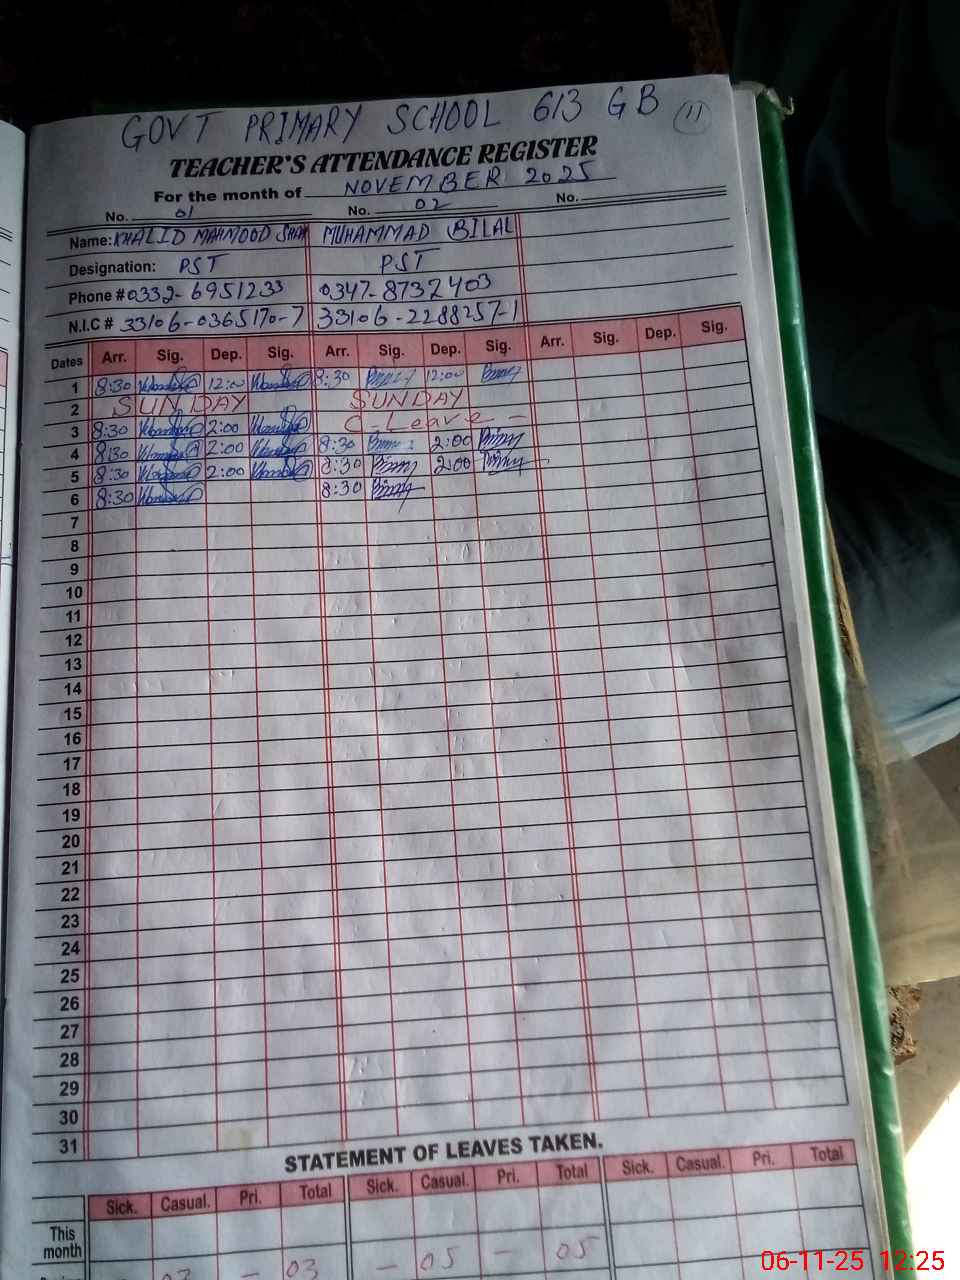 GOVT PRIMARY SCHOOL 613 GB 11
TEACHER'S ATTENDANCE REGISTER
For the month of NOVEMBER 2025
No. 01 No. 02 No.
Name: KHALID MAHMOOD SHAH MUHAMMAD BILAL
Designation: PST PST
Phone # 0332-6951233 0347-8732403
N.I.C # 33106-0365170-7 33106-2288257-1
Dates Arr. Sig. Dep. Sig. Arr. Sig. Dep. Sig. Arr. Sig. Dep. Sig.
1 8:30 12:00 8:30 12:00
2 SUNDAY SUNDAY
3 8:30 2:00 C-Leave -
4 8:30 2:00 8:30 2:00
5 8:30 2:00 8:30 2:00
6 8:30 8:30
7
8
9
10
11
12
13
14
15
16
17
18
19
20
21
22
23
24
25
26
27
28
29
30
31
STATEMENT OF LEAVES TAKEN.
Sick. Casual. Pri. Total Sick. Casual. Pri. Total Sick. Casual. Pri. Total
This month
03 - 03 - 05 - 05
06-11-25 12:25